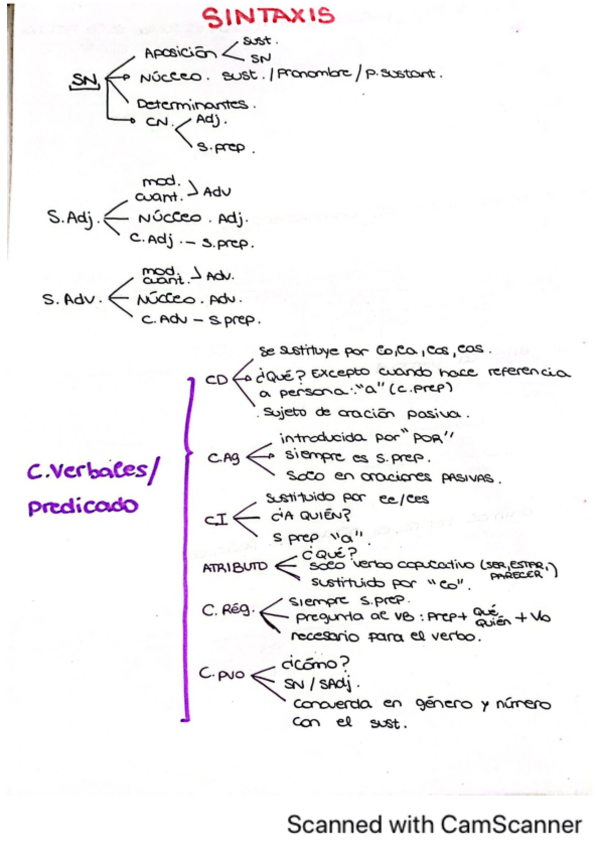 SINTAXIS
Aposición
sust.
SN
SN
Núcleo. sust./pronombre/p.sustant.
Determinantes.
CN.
Adj.
S.prep.
mod.
cuant.
Adv
S.Adj.
Núcleo. Adj.
C.Adj.- S.prep.
mod.
cuant.
Adv.
S. Adv.
Núcleo. Adv.
C.Adv - S.prep.
Se sustituye por lo, la, los, las.
CD
¿Qué? Excepto cuando hace referencia
a persona: "a" (c.prep)
sujeto de oración pasiva.
introducida por "POR"
C.Ag
siempre es S.prep.
Solo en oraciones PASIVAS.
C.Verbales/
predicado
sustituido por le/les
C.I
¿A QUIÉN?
S prep "a".
¿Qué?
ATRIBUTO
solo verbo copulativo (SER, ESTAR,
PARECER)
sustituido por "lo".
siempre S.prep.
C. Rég.
pregunta al VB: Prep+ qué
quién + Vb
necesario para el verbo.
¿cómo?
C. PVO
SN/SAdj.
concuerda en género y número
con el sust.
Scanned with CamScanner